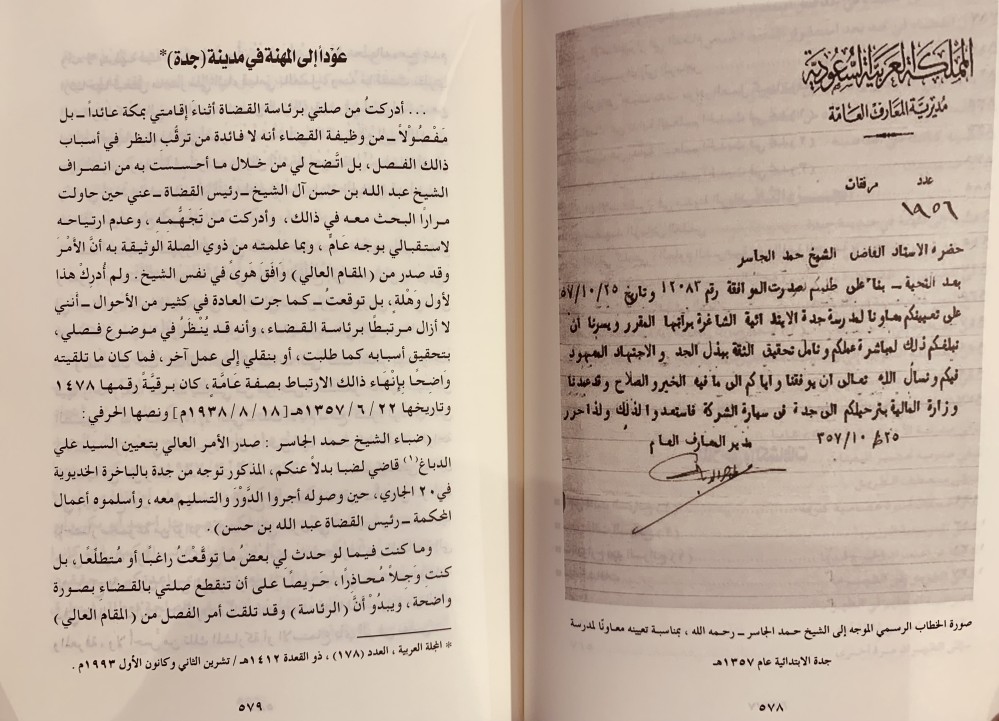 المملكة العربية السعودية
مديرية المعارف العامة
عدد مرفقات
١٩٥٦
حضرة الاستاذ الفاضل الشيخ حمد الجاسر
بعد التحية ــ بناء على طلبكم صدرت الموافقة رقم ١٢٠٨٣ وتاريخ ٥٧/١٠/٢٥
على تعيينكم معاونا لمدرسة جدة الابتدائية الشاغرة براتبها المقرر ويسرنا ان
نبلغكم ذلك لمباشرة عملكم ونامل تحقيق الثقة ببذل الجد والاجتهاد المعهود
فيكم ونسال الله تعالى ان يوفقنا واياكم الى ما فيه الخير والصلاح وقد عمدنا
وزارة المالية بترحيلكم الى جدة فى سيارة الشركة فاستعدوا لذلك ولذا حرر
٣٥٧/١٠/٢٥ مدير المعارف العام
صورة الخطاب الرسمي الموجه إلى الشيخ حمد الجاسر ــ رحمه الله ، بمناسبة تعيينه معاونًا لمدرسة
جدة الابتدائية عام ١٣٥٧هـ
٥٧٨
عَوْداً إلى المهنة في مدينة (جدة)*
... أدركتُ من صلتي برئاسة القضاة أثناءَ إقامتي بمكة عائداً ــ بل
مَفْصُولاً ــ من وظيفة القضاء أنه لا فائدة من ترقّب النظر في أسباب
ذالك الفصل، بل اتَّضح لي من خلال ما أحسست به من انصراف
الشيخ عبد الله بن حسن آل الشيخ ــ رئيس القضاة ــ عني حين حاولت
مرارًا البحث معه في ذالك، وأدركت من تَجَهُّمِه ، وعدم ارتياحه
لاستقبالي بوجه عَامٍّ ، وبما علمته من ذوي الصلة الوثيقة به أنَّ الأَمْرَ
وقد صدر من (المقام العالي) وَافَقَ هَوىً في نفس الشيخ. ولم أُدرِكْ هذا
لأول وَهْلَةٍ، بل توقعتُ ــ كما جرت العادة في كثير من الأحوال ــ أنني
لا أزال مرتبطًا برئاسة القضاء، وأنه قد يُنْظَرُ في موضوع فصلي،
بتحقيق أسبابه كما طلبت، أو بنقلي إلى عمل آخر، فما كان ما تلقيته
وَاضِحًا بإِنْهَاءِ ذالك الارتباط بصفة عَامَّة، كان برقيَّةً رقمها ١٤٧٨
وتاريخها ١٣٥٧/٦/٢٢هـ [١٩٣٨/٨/١٨م] ونصها الحرفي:
(ضباء الشيخ حمد الجاسر : صدر الأمر العالي بتعيين السيد علي
الدباغ(١) قاضي لضبا بدلاً عنكم، المذكور توجه من جدة بالباخرة الخديوية
في ٢٠ الجاري، حين وصوله أجروا الدَّوْرَ والتسليم معه، وأسلموه أعمال
المحكمة ــ رئيس القضاة عبد الله بن حسن).
وما كنت فيما لو حدث لي بعضُ ما توقَّعْتُ راغبًا أو مُتطلِّعًا، بل
كنت وَجِلاً مُحاذِرًا، حَريصًا على أن تنقطع صلتي بالقضاء بصورة
واضحة، ويبدُوْ أنَّ (الرئاسة) وقد تلقت أمر الفصل من (المقام العالي)
* المجلة العربية ، العدد (١٧٨) ، ذو القعدة ١٤١٢هـ / تشرين الثاني وكانون الأول ١٩٩٣م .
٥٧٩